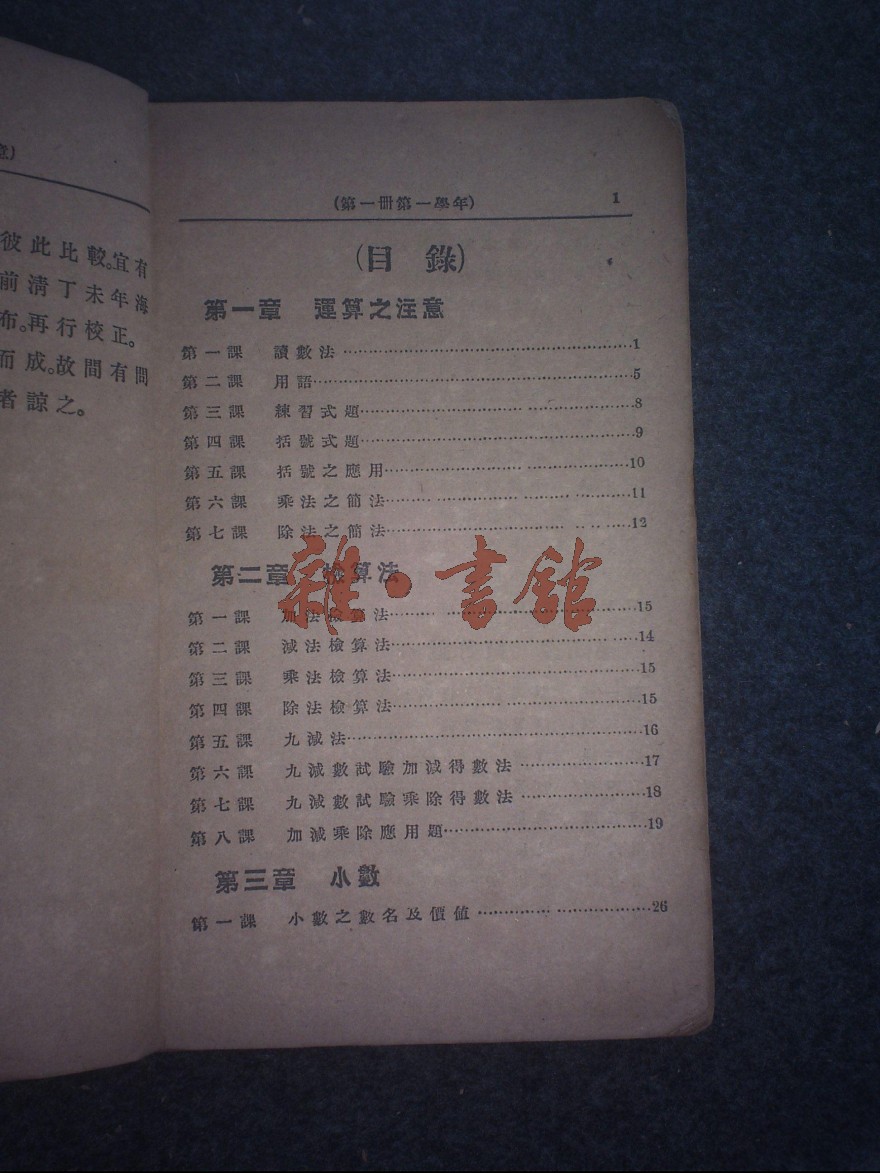 意)
彼此比較。宜有
前清丁未年海
布。再行校正。
而成。故間有問
者諒之。
(第一冊第一學年) 1
(目錄)
第一章 運算之注意
第一課 讀數法……1
第二課 用語……5
第三課 練習式題……8
第四課 括號式題……9
第五課 括號之應用……10
第六課 乘法之簡法……11
第七課 除法之簡法……12
第二章 檢算法
第一課 加法檢算法……15
第二課 減法檢算法……14
第三課 乘法檢算法……15
第四課 除法檢算法……15
第五課 九減法……16
第六課 九減數試驗加減得數法……17
第七課 九減數試驗乘除得數法……18
第八課 加減乘除應用題……19
第三章 小數
第一課 小數之數名及價值……26
雜·書館